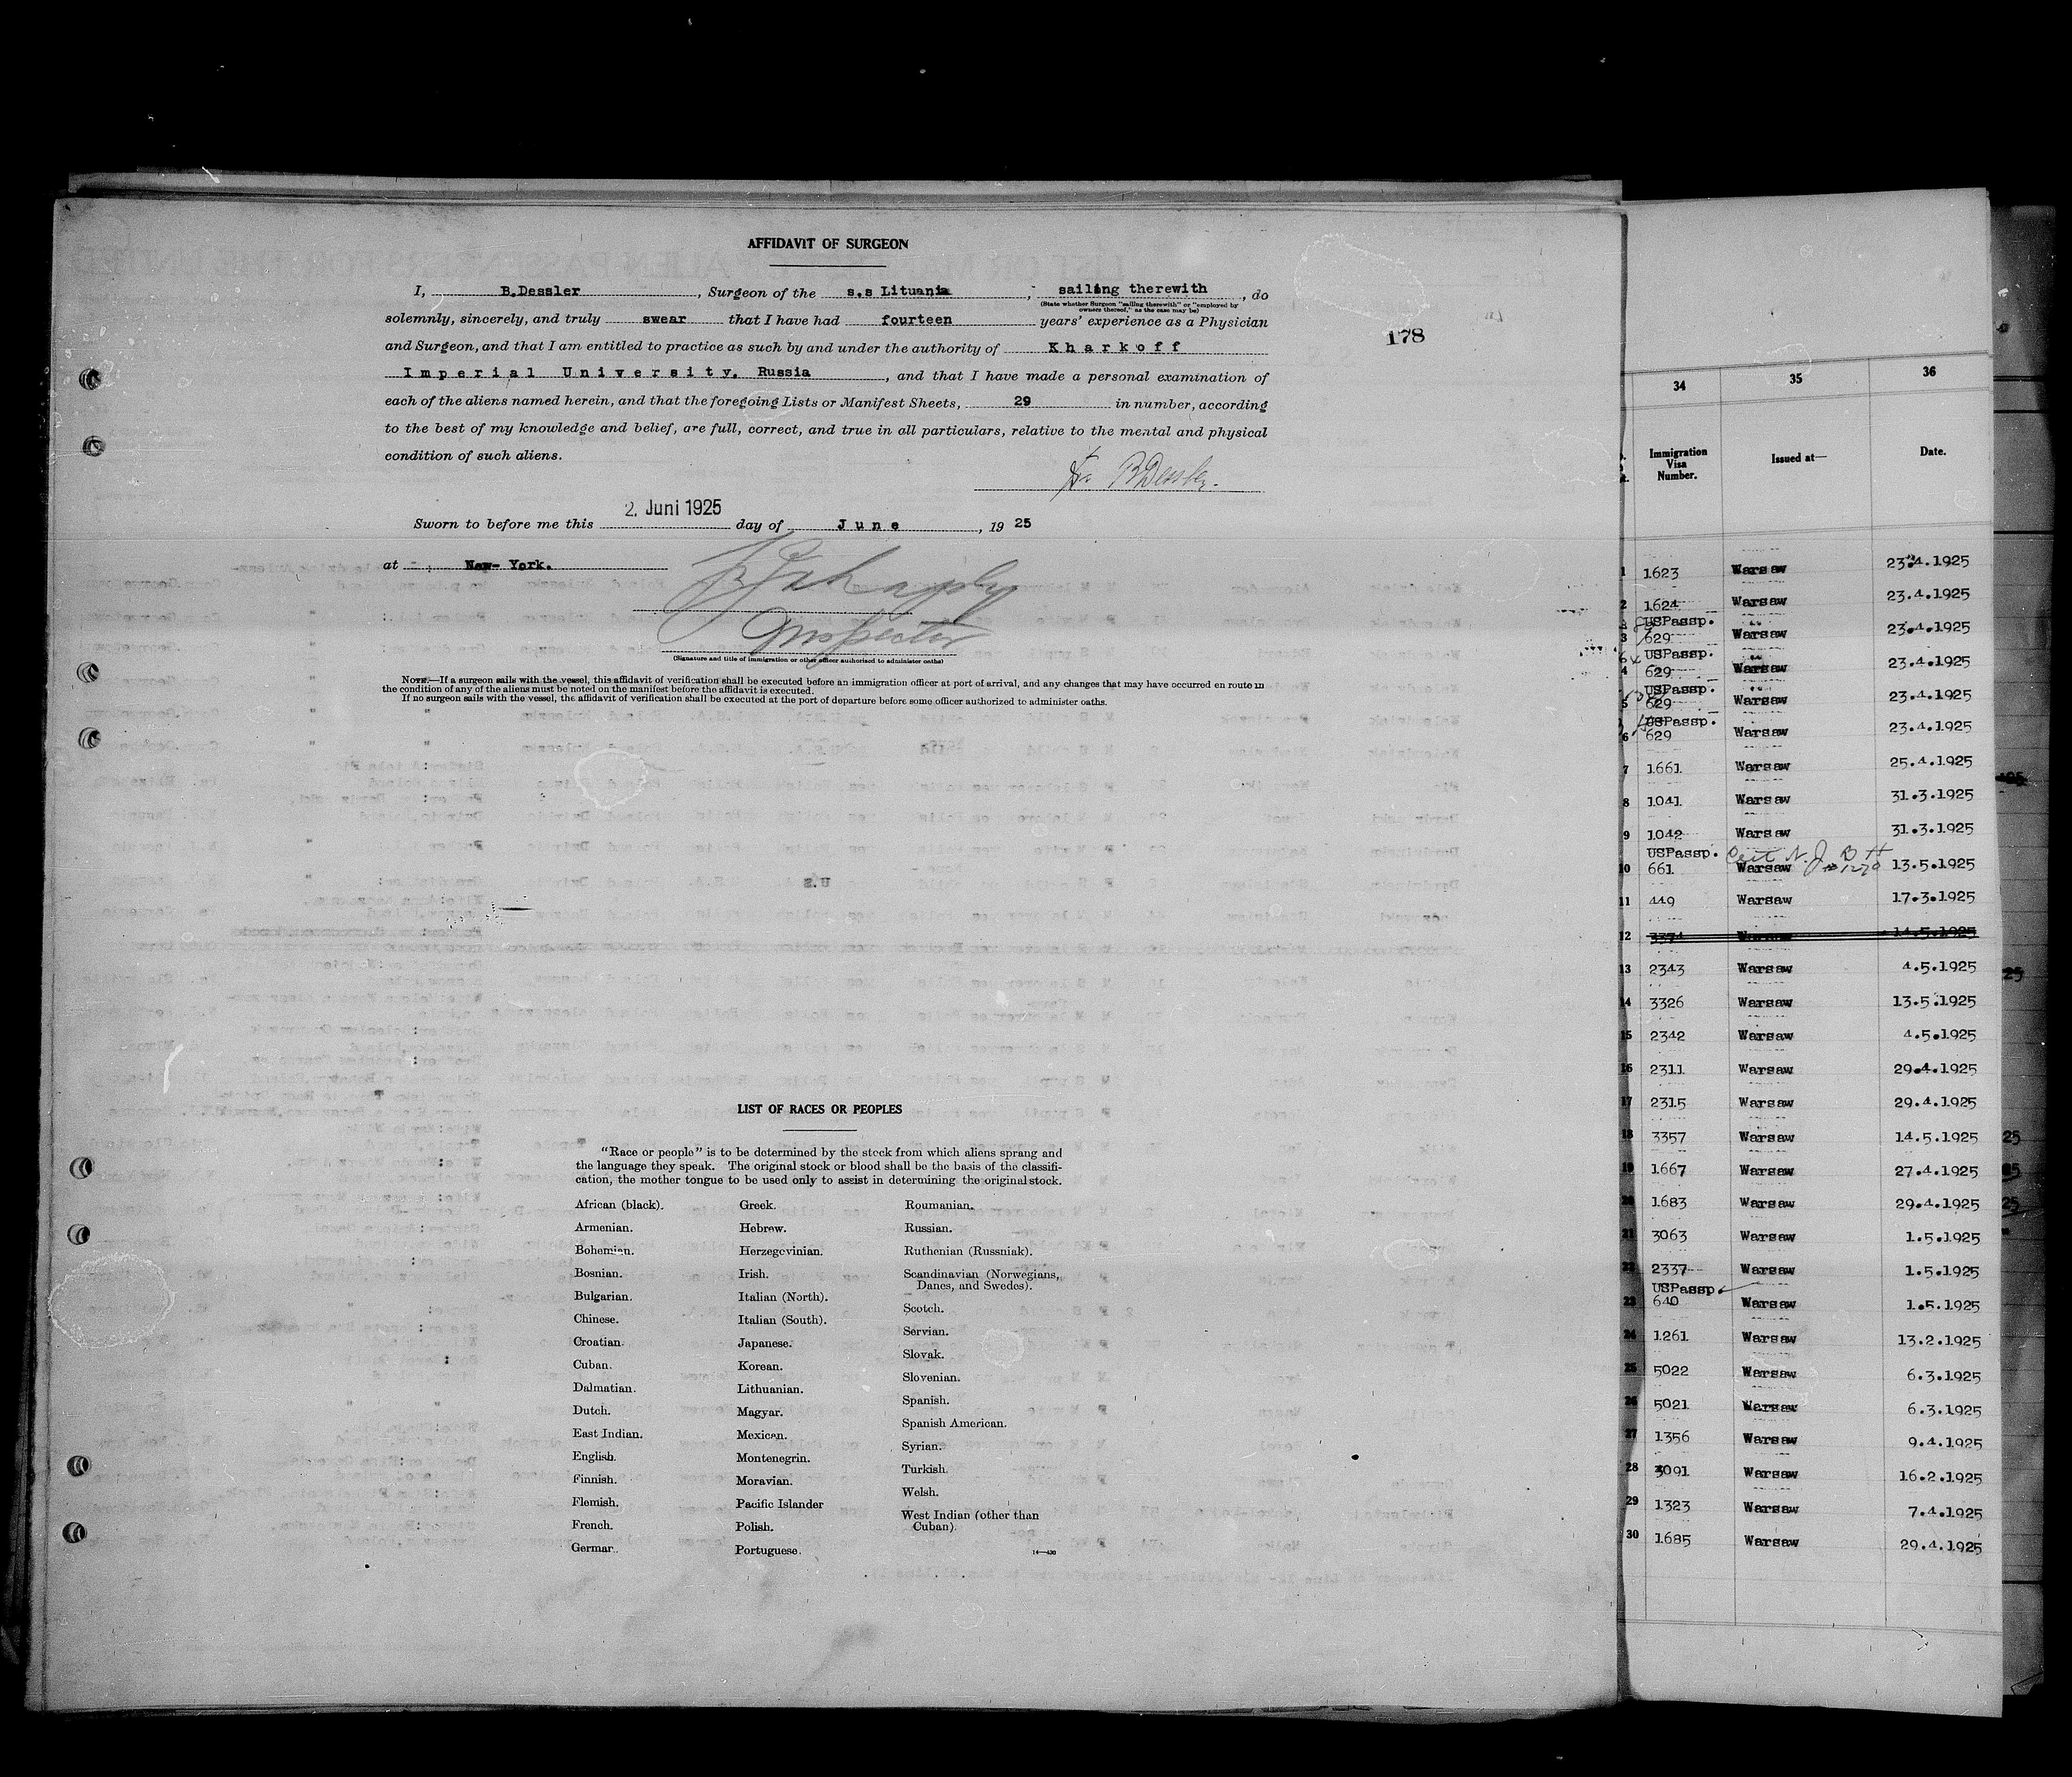 AFFIDAVIT OF SURGEON
I, B.Dessler, Surgeon of the s.s Lituania, sailing therewith, do
(State whether Surgeon "sailing therewith" or "employed by
owners thereof," as the case may be)
solemnly, sincerely, and truly swear that I have had fourteen years' experience as a Physician
178
and Surgeon, and that I am entitled to practice as such by and under the authority of Kharkoff
Imperial University. Russia, and that I have made a personal examination of
each of the aliens named herein, and that the foregoing Lists or Manifest Sheets, 29 in number, according
to the best of my knowledge and belief, are full, correct, and true in all particulars, relative to the mental and physical
condition of such aliens.
Dr BDessler.
2. Juni 1925
Sworn to before me this day of June, 19 25
at New-York.
Inspector
(Signature and title of immigration or other officer authorized to administer oaths)
NOTE.—If a surgeon sails with the vessel, this affidavit of verification shall be executed before an immigration officer at port of arrival, and any changes that may have occurred en route in
the condition of any of the aliens must be noted on the manifest before the affidavit is executed.
If no surgeon sails with the vessel, the affidavit of verification shall be executed at the port of departure before some officer authorized to administer oaths.
LIST OF RACES OR PEOPLES
"Race or people" is to be determined by the stock from which aliens sprang and
the language they speak. The original stock or blood shall be the basis of the classifi-
cation, the mother tongue to be used only to assist in determining the original stock.
African (black).
Armenian.
Bohemian.
Bosnian.
Bulgarian.
Chinese.
Croatian.
Cuban.
Dalmatian.
Dutch.
East Indian.
English.
Finnish.
Flemish.
French.
German.
Greek.
Hebrew.
Herzegovinian.
Irish.
Italian (North).
Italian (South).
Japanese.
Korean.
Lithuanian.
Magyar.
Mexican.
Montenegrin.
Moravian.
Pacific Islander
Polish.
Portuguese.
Roumanian.
Russian.
Ruthenian (Russniak).
Scandinavian (Norwegians,
Danes, and Swedes).
Scotch.
Servian.
Slovak.
Slovenian.
Spanish.
Spanish American.
Syrian.
Turkish.
Welsh.
West Indian (other than
Cuban).
34 35 36
Immigration
Visa
Number.
Issued at—
Date.
1 1623 Warsaw 23.4.1925
2 1624 Warsaw 23.4.1925
USPassp.
3 629 Warsaw 23.4.1925
USPassp.
4 629 Warsaw 23.4.1925
USPassp.
5 629 Warsaw 23.4.1925
USPassp.
6 629 Warsaw 23.4.1925
7 1661 Warsaw 25.4.1925
8 1041 Warsaw 31.3.1925
9 1042 Warsaw 31.3.1925
USPassp.
10 661 Warsaw 13.5.1925
11 449 Warsaw 17.3.1925
12 Warsaw 14.5.1925
13 2343 Warsaw 4.5.1925
14 3326 Warsaw 13.5.1925
15 2342 Warsaw 4.5.1925
16 2311 Warsaw 29.4.1925
17 2315 Warsaw 29.4.1925
18 3357 Warsaw 14.5.1925
19 1667 Warsaw 27.4.1925
20 1683 Warsaw 29.4.1925
21 3063 Warsaw 1.5.1925
22 2337 Warsaw 1.5.1925
USPassp.
23 640 Warsaw 1.5.1925
24 1261 Warsaw 13.2.1925
25 5022 Warsaw 6.3.1925
26 5021 Warsaw 6.3.1925
27 1356 Warsaw 9.4.1925
28 3091 Warsaw 16.2.1925
29 1323 Warsaw 7.4.1925
30 1685 Warsaw 29.4.1925